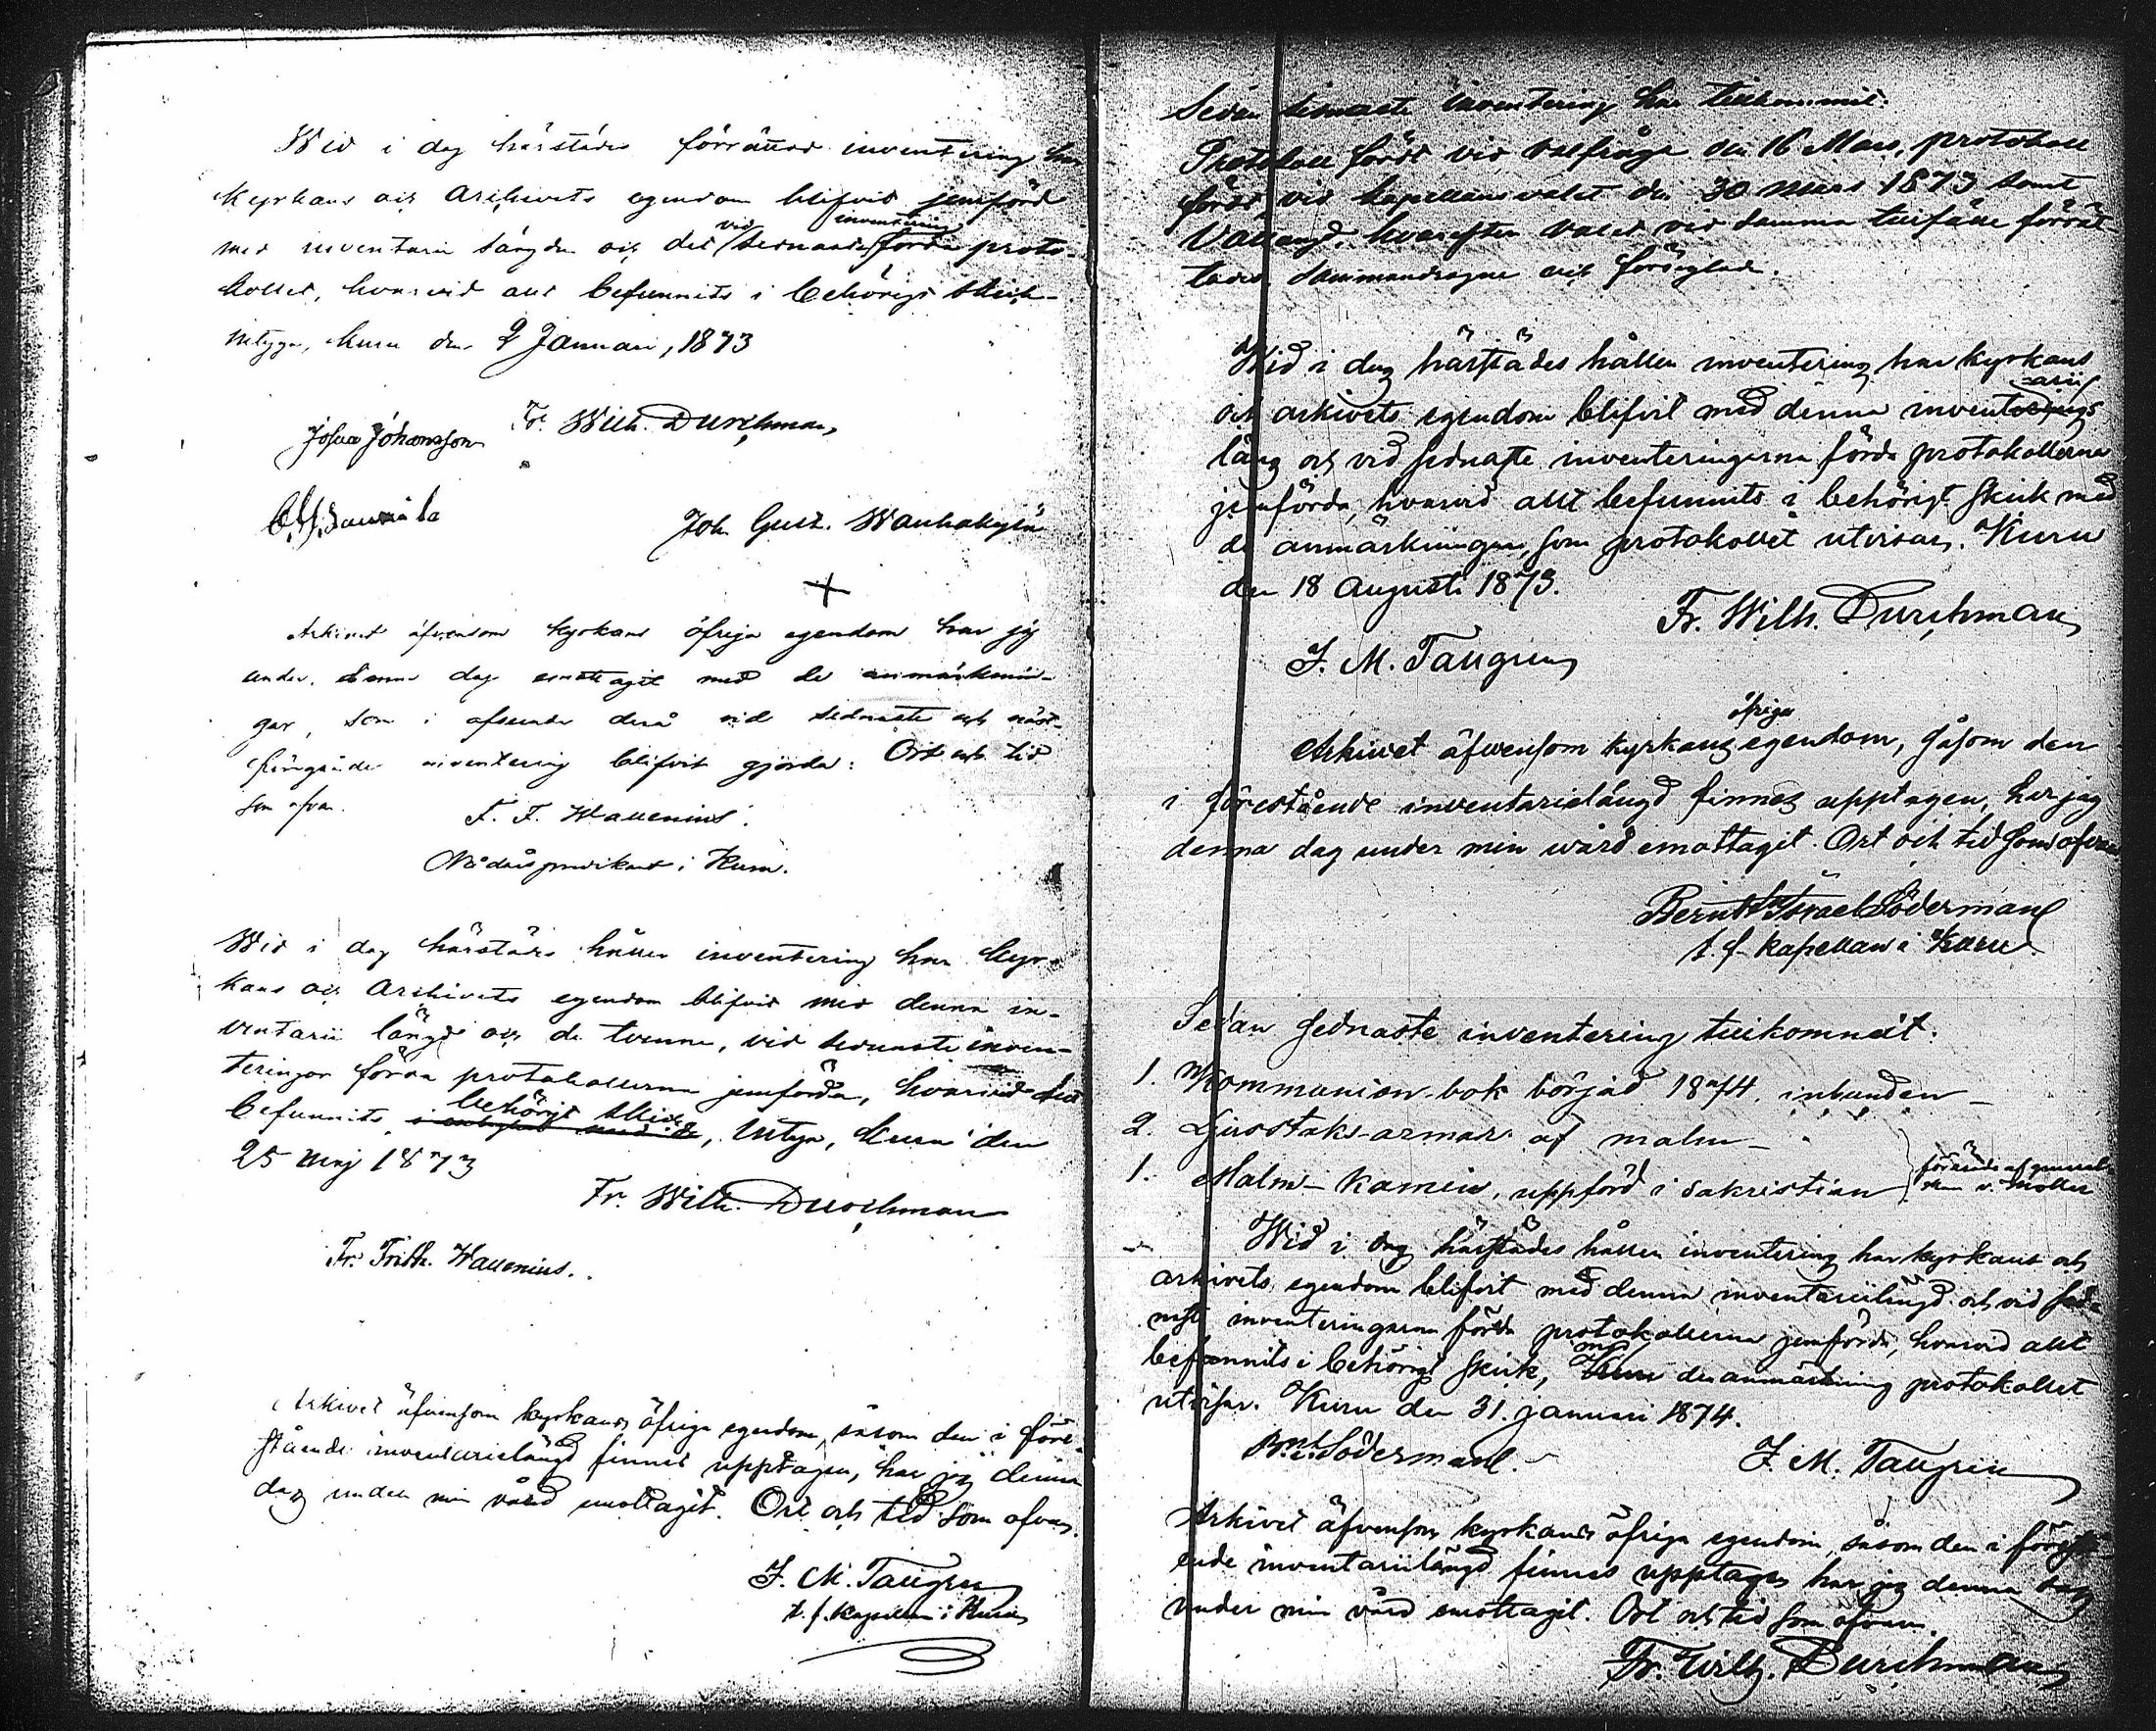 Wid i dag härstädes förrättad inventering har
Kyrkans och Archivets egendom blifvit jemförd
med inventarii längden och det vid sednaste inventering förda proto-
kollet, hvarvid allt befunnits i behörigt skick
intyga, Kuru den 2 Januari, 1873
Fr. Wilh. Durchman,
Josua Johansson
Joh. Gust. Wanhakylä
Arkivet äfvensom kyrkans öfriga egendom har jag
under denna dag emottagit med de anmärknin-
gar, som i afseende derå vid sednaste och näst-
föregående inventering blifvit gjorda: Ort och tid
som ofvan.
F. F. Wallenius.
Nådårspredikant i Kuru.
Wid i dag härstädes hållen inventering har Kyr-
kans och Archivets egendom blifvit med denna in-
ventarii längd och de tvenne, vid sednaste inven-
teringar förda protokollerna jemförda, hvarvid allt
befunnits i behörigt skick, intyga, Kuru den
25 Maj 1873
Fr. Wilh. Durchman
Fr. Frith. Wallenius.
Arkivet äfvensom kyrkans öfriga egendom, såsom den i före-
stående inventarielängd finnes upptagen, har jag denna
dag under min vård emottagit. Ort och tid som ofvan.
F. M. Taugren
t. f. kapellan i Kuru
Sedan sednaste inventering har tillkommit:
Protokoll fördt vid valfråga den 16 Mars, protokoll
fördt vid kapellansvalet den 30 Mars 1873 samt
Vallängd, hvarefter valet vid samma tillfälle förrät-
tades, sammandragne och förseglade.
Wid i dag härstädes hållen inventering har kyrkans
och arkivets egendom blifvit med denna inventarii
läng och vid sednaste inventeringarna förda protokollerna
jemförda, hvarvid allt befunnits i behörigt skick med
de anmärkningar, som protokollet utvisar. Kuru
den 18 Augusti 1873.
Fr. Wilh. Durchman
F. M. Taugren
Arkivet äfvensom kyrkans öfriga egendom, såsom den
i förestående inventarielängd finnes upptagen, har jag
denna dag under min wård emottagit. Ort och tid som ofvan
Bernt Israel Södermanl
t. f. kapellan i Kuru.
Sedan sednaste inventering tillkommit:
1. Kommunion-bok börjad 1874, inbunden
2. Ljusstaks-armar af malm
1. Malm-kamin, uppförd i sakristian
Wid i dag härstädes hållen inventering har kyrkans och
arkivets egendom blifvit med denna inventariilängd och vid sed-
nast inventeringarna förda protokollerna jemförda, hvarvid allt
befunnits i behörigt skick, med den anmärkning protokollet
utvisar. Kuru den 31. januari 1874.
Bnt. Södermanl.
F. M. Taugren
Arkivet äfvensom kyrkans öfriga egendom, såsom den i förestå-
ende inventariilängd finnes upptagen har jag denna dag
under min vård emottagit. Ort och tid som ofvan.
Fr. Wilh. Durchman